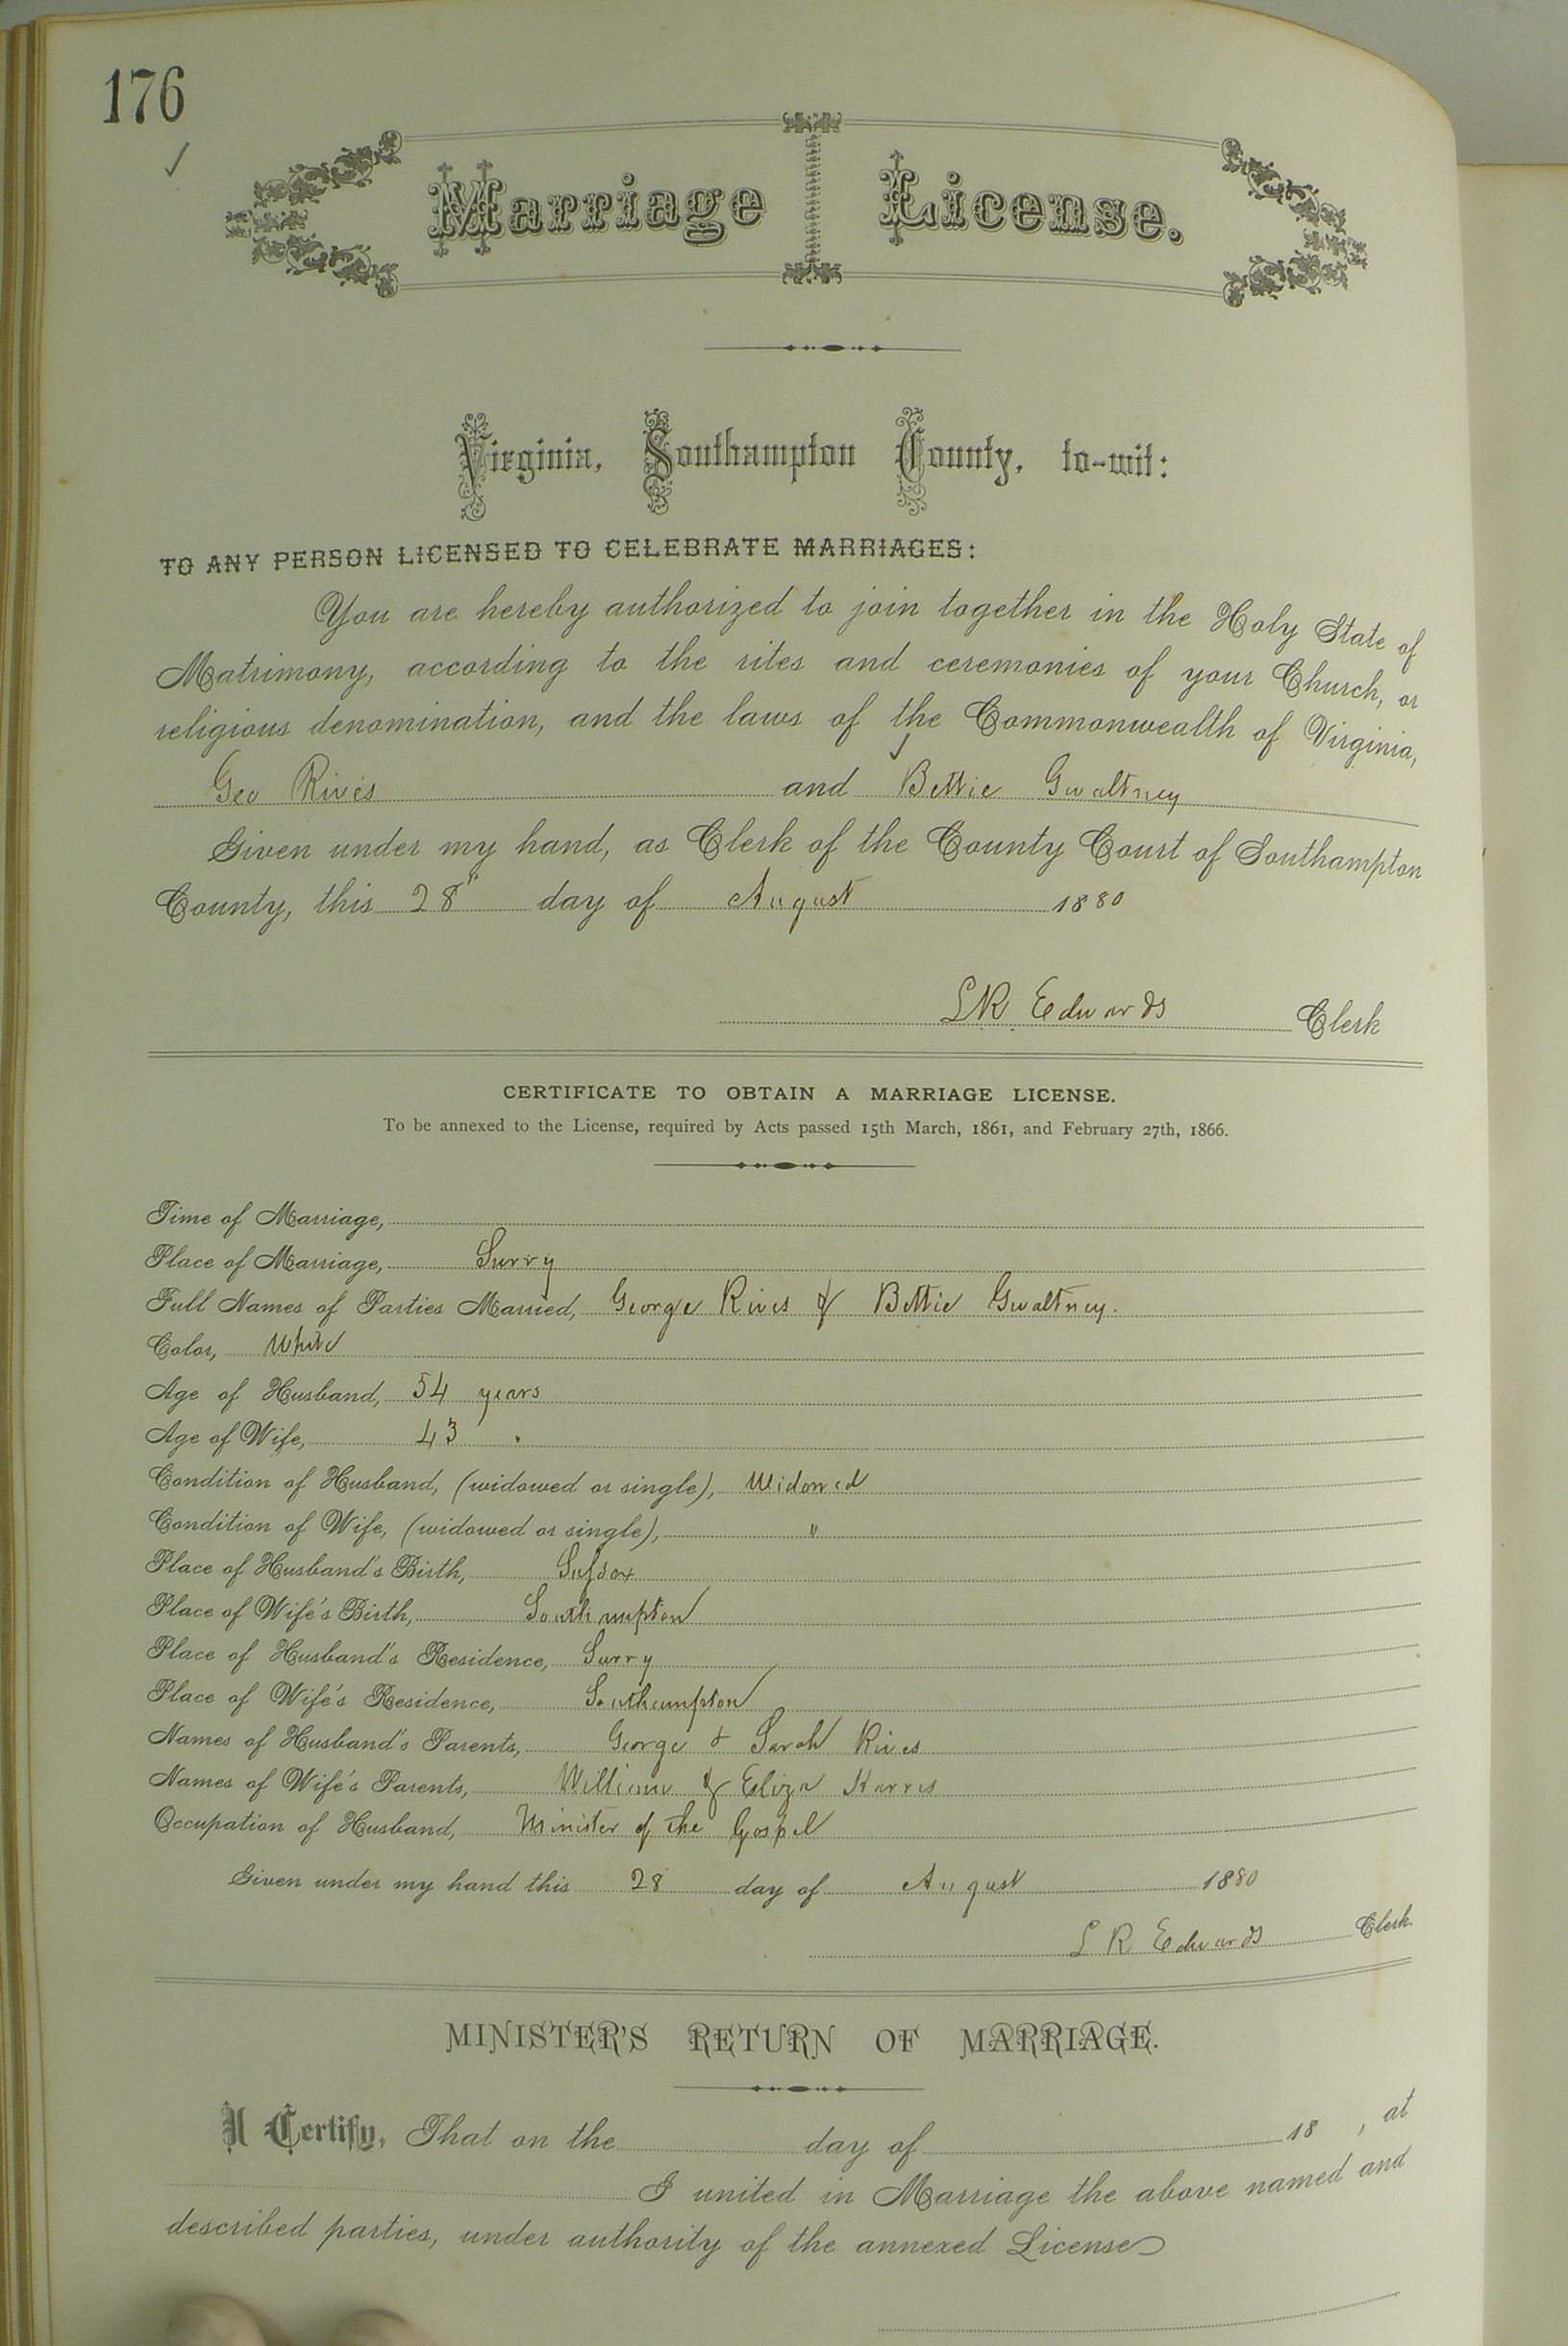 176
Marriage License.
Virginia, Southampton County, to-wit:
TO ANY PERSON LICENSED TO CELEBRATE MARRIAGES:
You are hereby authorized to join together in the Holy State of
Matrimony, according to the rites and ceremonies of your Church, or
religious denomination, and the laws of the Commonwealth of Virginia,
Geo Rives and Bettie Gwaltney
Given under my hand, as Clerk of the County Court of Southampton
County, this 28" day of August 1880
L R Edwards Clerk
CERTIFICATE TO OBTAIN A MARRIAGE LICENSE.
To be annexed to the License, required by Acts passed 15th March, 1861, and February 27th, 1866.
Time of Marriage,
Place of Marriage, Surry
Full Names of Parties Married, George Rives & Bettie Gwaltney.
Color, White
Age of Husband, 54 years
Age of Wife, 43 "
Condition of Husband, (widowed or single), Widowed
Condition of Wife, (widowed or single), "
Place of Husband's Birth,
Place of Wife's Birth, Southampton
Place of Husband's Residence, Surry
Place of Wife's Residence, Southampton
Names of Husband's Parents, George & Sarah Rives
Names of Wife's Parents, William & Eliza Harris
Occupation of Husband, Minister of the Gospel
Given under my hand this 28 day of August 1880
L R Edwards Clerk.
MINISTER'S RETURN OF MARRIAGE.
I Certify, That on the day of 18 , at
I united in Marriage the above named and
described parties, under authority of the annexed License